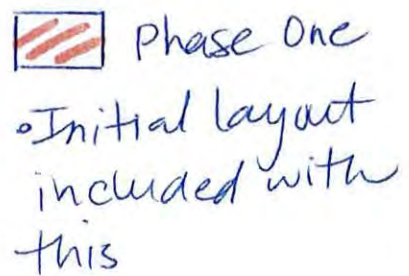 Phase One
•Initial layout
included with
this